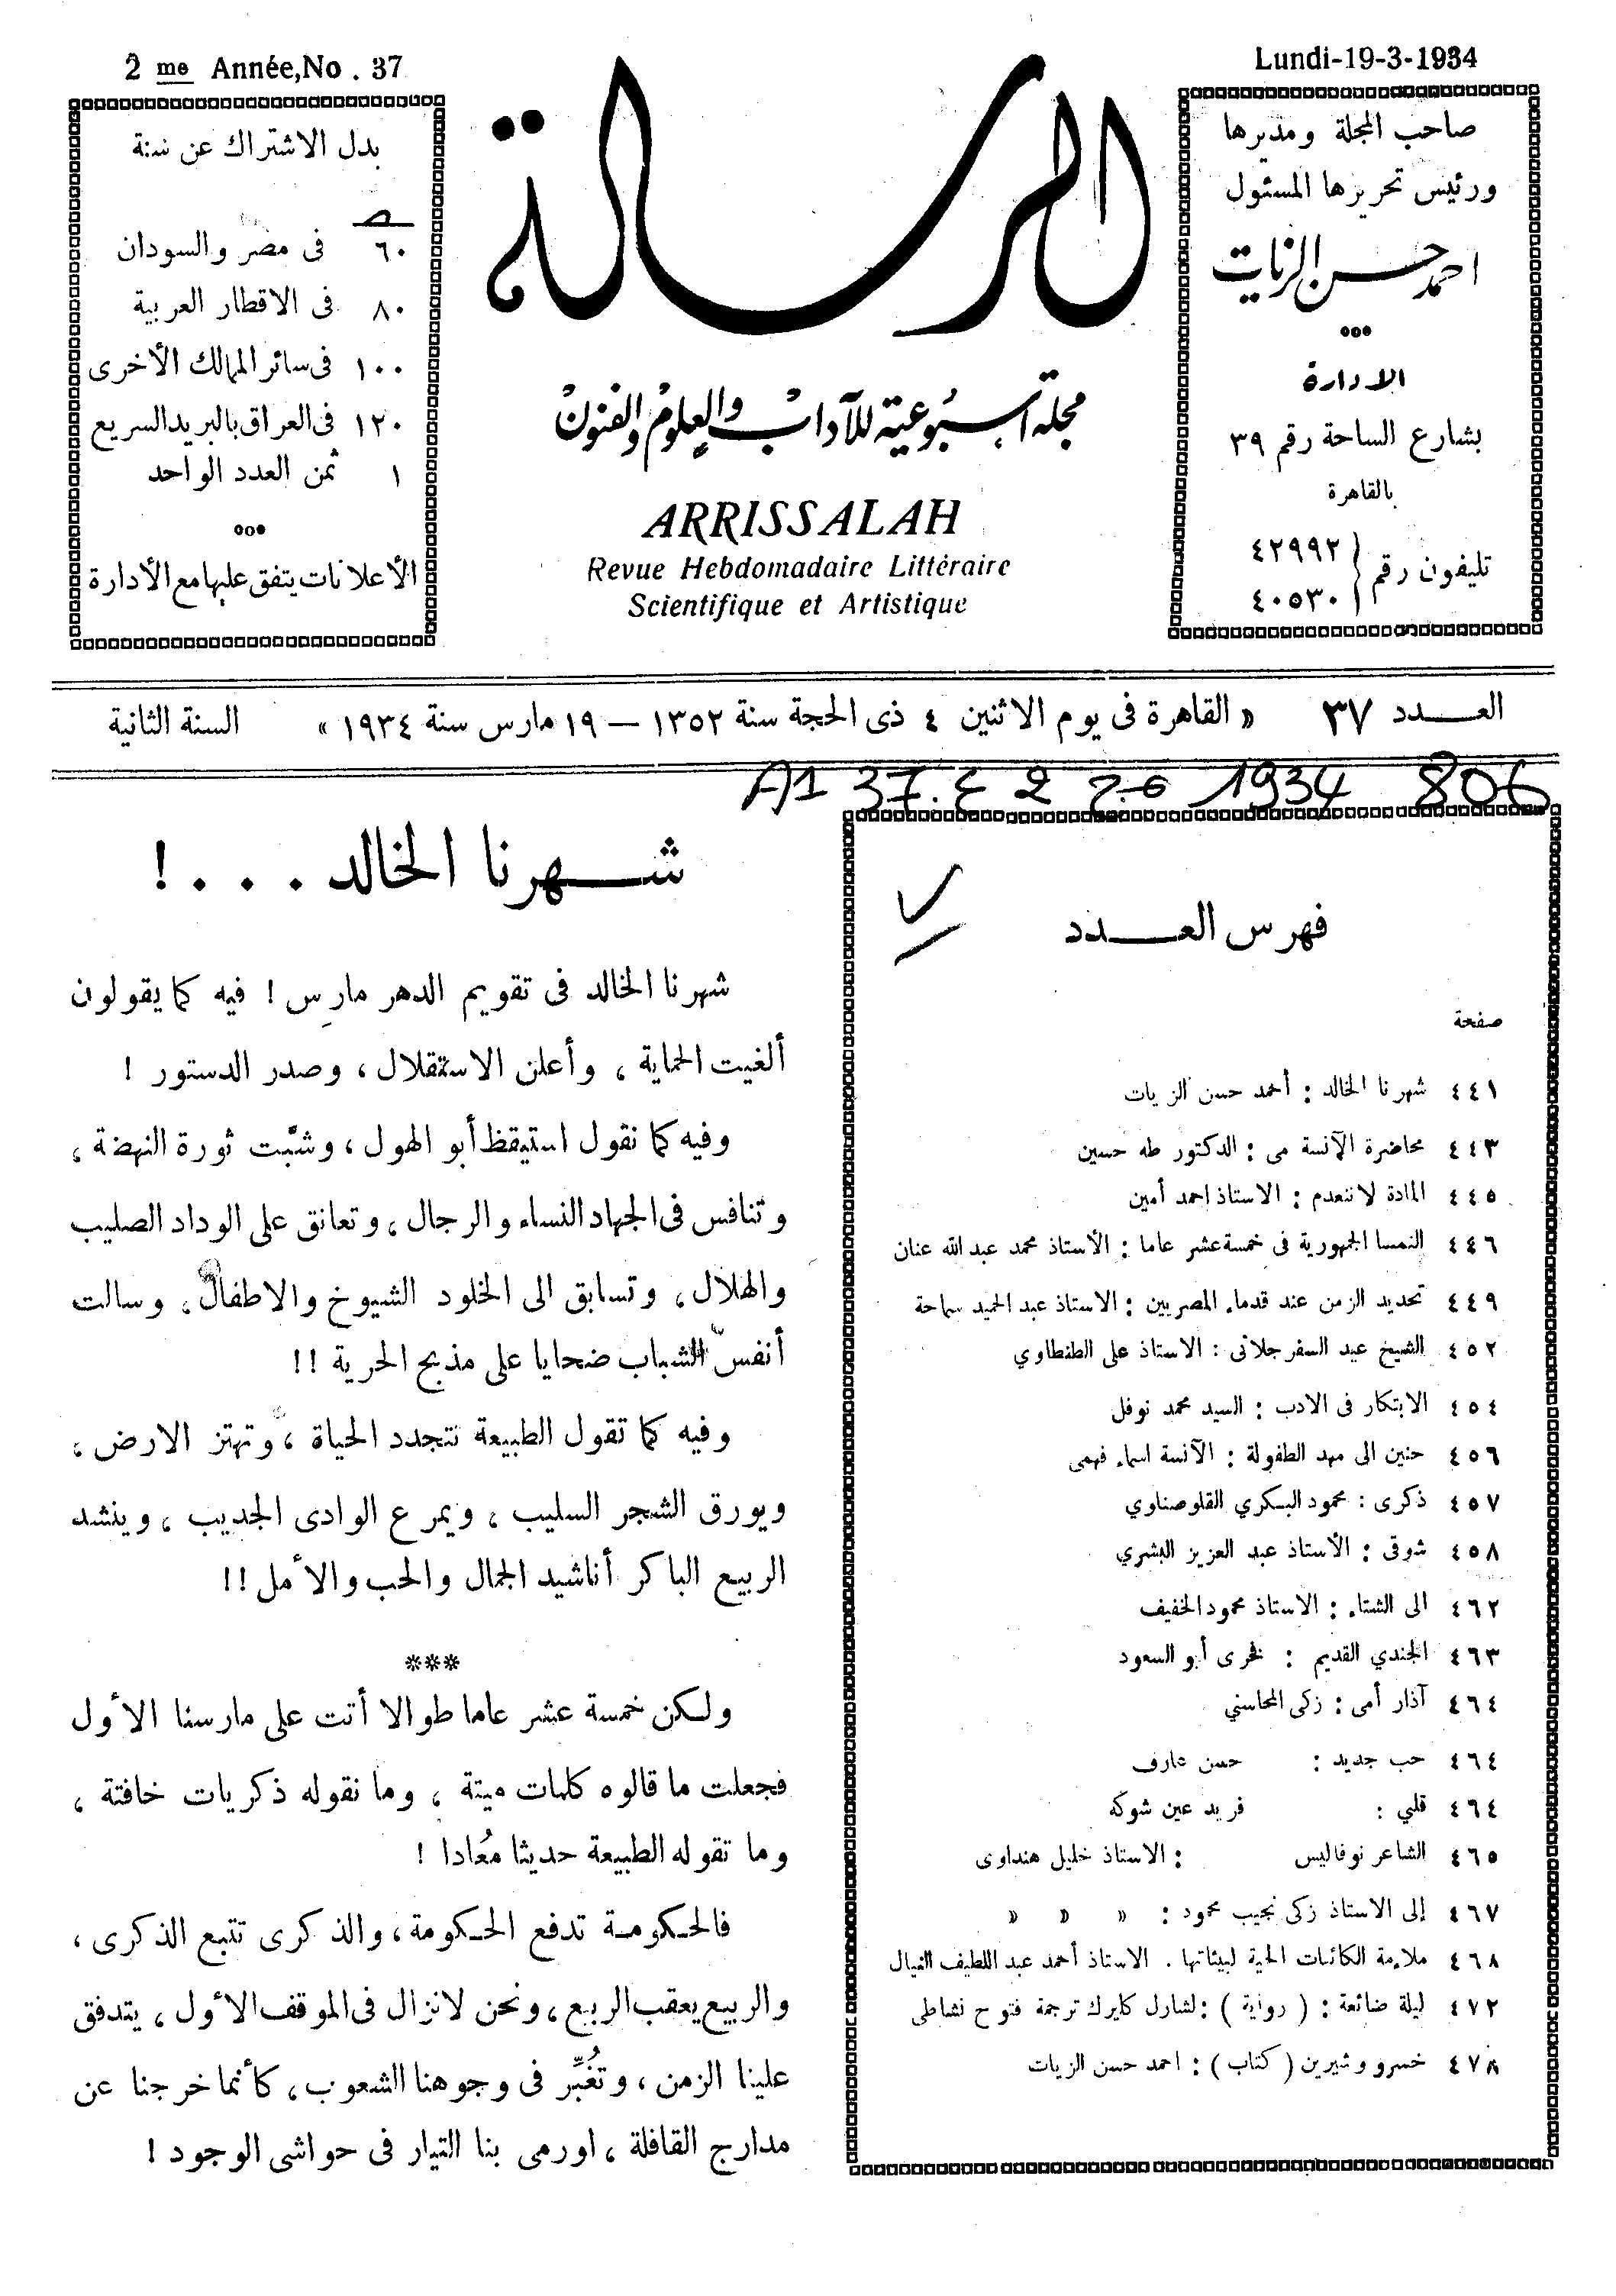 2 me Année, No. 37
Lundi-19-3-1934
صاحب المجلة ومديرها
ورئيس تحريرها المسئول
احمد حسن الزيات
الادارة
بشارع الساحة رقم ٣٩
بالقاهرة
تليفون رقم
٤٢٩٩٢
٤٠٥٣٠
الرسالة
مجلة أسبوعية للآداب والعلوم والفنون
ARRISSALAH
Revue Hebdomadaire Littéraire
Scientifique et Artistique
بدل الاشتراك عن سنة
ص
٦٠ فى مصر والسودان
٨٠ فى الاقطار العربية
١٠٠ فى سائر الممالك الأخرى
١٢٠ فى العراق بالبريد السريع
١ ثمن العدد الواحد
الأعلانات يتفق عليها مع الأدارة
العـــدد ٣٧ « القاهرة فى يوم الاثنين ٤ ذى الحجة سنة ١٣٥٢ — ١٩ مارس سنة ١٩٣٤ » السنة الثانية
فهرس العـــدد
صفحة
٤٤١ شهرنا الخالد : أحمد حسن الزيات
٤٤٣ محاضرة الآنسة مى : الدكتور طه حسين
٤٤٥ المادة لا تنعدم : الاستاذ احمد أمين
٤٤٦ النمسا الجمهورية فى خمسة عشر عاما : الأستاذ محمد عبد الله عنان
٤٤٩ تحديد الزمن عند قدماء المصريين : الاستاذ عبد الحميد سماحة
٤٥٢ الشيخ عيد السفرجلانى : الاستاذ على الطنطاوي
٤٥٤ الابتكار فى الادب : السيد محمد نوفل
٤٥٦ حنين الى مهد الطفولة : الآنسة اسماء فهمى
٤٥٧ ذكرى : محمود البسكري القلوصناوي
٤٥٨ شوقى : الأستاذ عبد العزيز البشري
٤٦٢ الى الشتاء : الاستاذ محمود الخفيف
٤٦٣ الجندي القديم : فخرى أبو السعود
٤٦٤ آذار أمى : زكى المحاسني
٤٦٤ حب جديد : حسن عارف
٤٦٤ قلبي : فريد عين شوكه
٤٦٥ الشاعر نوفاليس : الاستاذ خليل هنداوى
٤٦٧ إلى الاستاذ زكى نجيب محمود : » » »
٤٦٨ ملاءمة الكائنات الحية لبيئاتها . الاستاذ أحمد عبد اللطيف النيال
٤٧٢ ليلة ضائعة : ( رواية ) : لشارل كليرك ترجمة فتوح نشاطى
٤٧٨ خسرو وشيرين ( كتاب ) : احمد حسن الزيات
شـــهرنا الخالد . . . !
شهرنا الخالد فى تقويم الدهر مارس ! فيه كما يقولون
ألغيت الحماية ، وأعلن الاستقلال ، وصدر الدستور !
وفيه كما نقول استيقظ أبو الهول ، وشبَّت ثورة النهضة ،
وتنافس فى الجهاد النساء والرجال ، وتعانق على الوداد الصليب
والهلال ، وتسابق الى الخلود الشيوخ والاطفال ، وسالت
أنفس الشباب ضحايا على مذبح الحرية !!
وفيه كما تقول الطبيعة تتجدد الحياة ، وتهتز الارض ،
ويورق الشجر السليب ، ويمرع الوادى الجديب ، وينشد
الربيع الباكر أناشيد الجمال والحب والأمل !!
***
ولكن خمسة عشر عاما طوالا أتت على مارسنا الأول
فجعلت ما قالوه كلمات ميتة ، وما نقوله ذكريات خافتة ،
وما تقوله الطبيعة حديثا مُعادا !
فالحكومة تدفع الحكومة ، والذكرى تتبع الذكرى ،
والربيع يعقب الربيع ، ونحن لا نزال فى الموقف الأول ، يتدفق
علينا الزمن ، وتُغبِّر فى وجوهنا الشعوب ، كأنما خرجنا عن
مدارج القافلة ، اورمى بنا التيار فى حواشى الوجود !